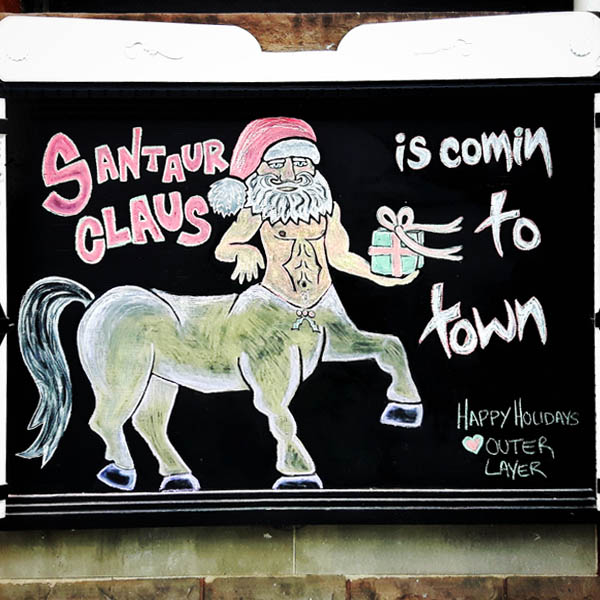 SANTAUR
CLAUS
is comin
to
town
HAPPY HOLIDAYS
♥ OUTER
LAYER